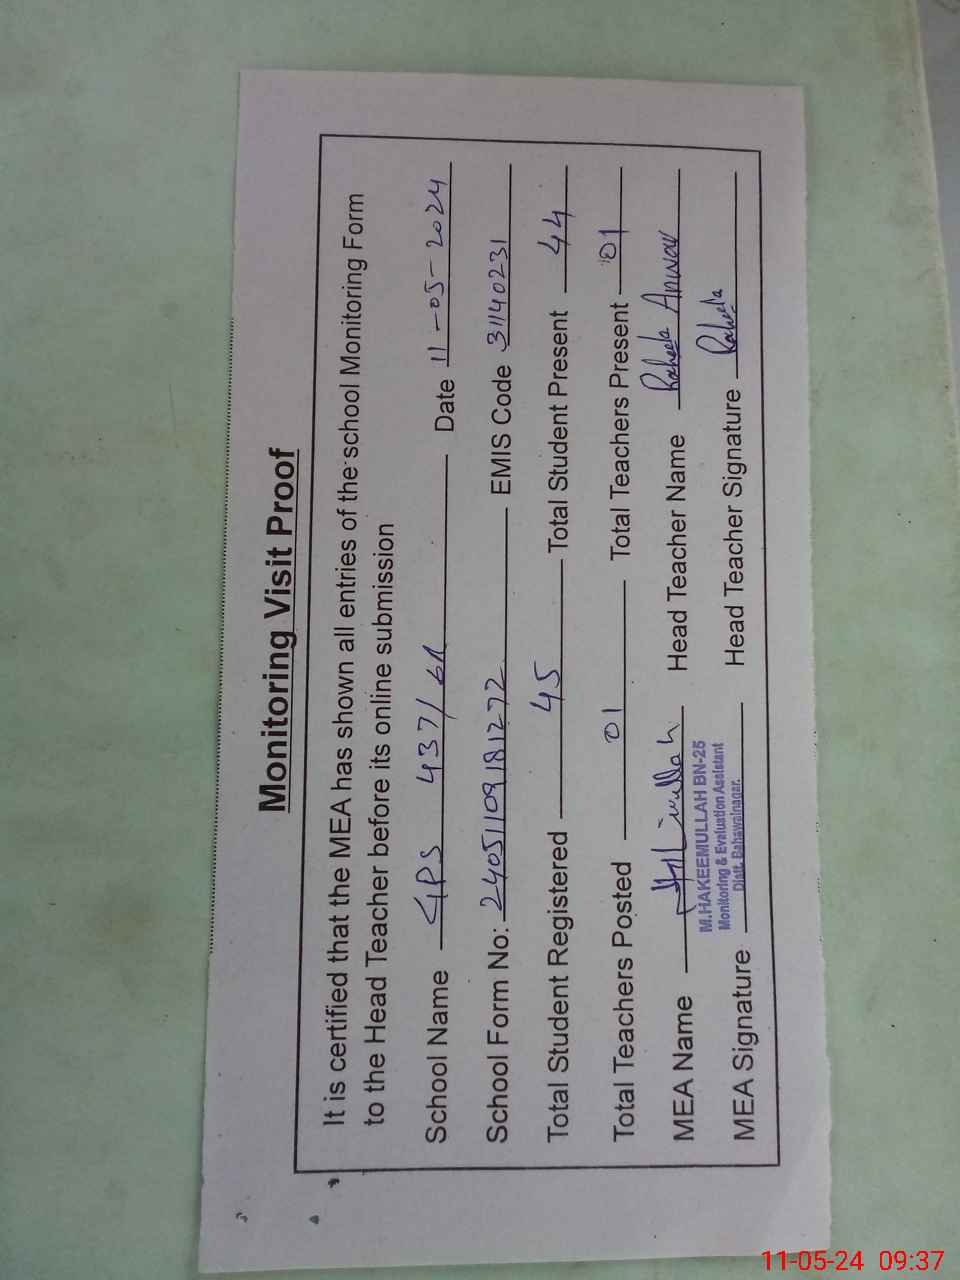 Monitoring Visit Proof
It is certified that the MEA has shown all entries of the school Monitoring Form
to the Head Teacher before its online submission
School Name GPS 437/6R Date 11-05-2024
School Form No: 24051109181272 EMIS Code 31140231
Total Student Registered 45 Total Student Present 44
Total Teachers Posted 01 Total Teachers Present 01
MEA Name Head Teacher Name Raheela Anwar
M.HAKEEMULLAH BN-25
Monitoring & Evaluation Assistant
Distt. Bahawalnagar.
MEA Signature Head Teacher Signature Raheela
11-05-24 09:37